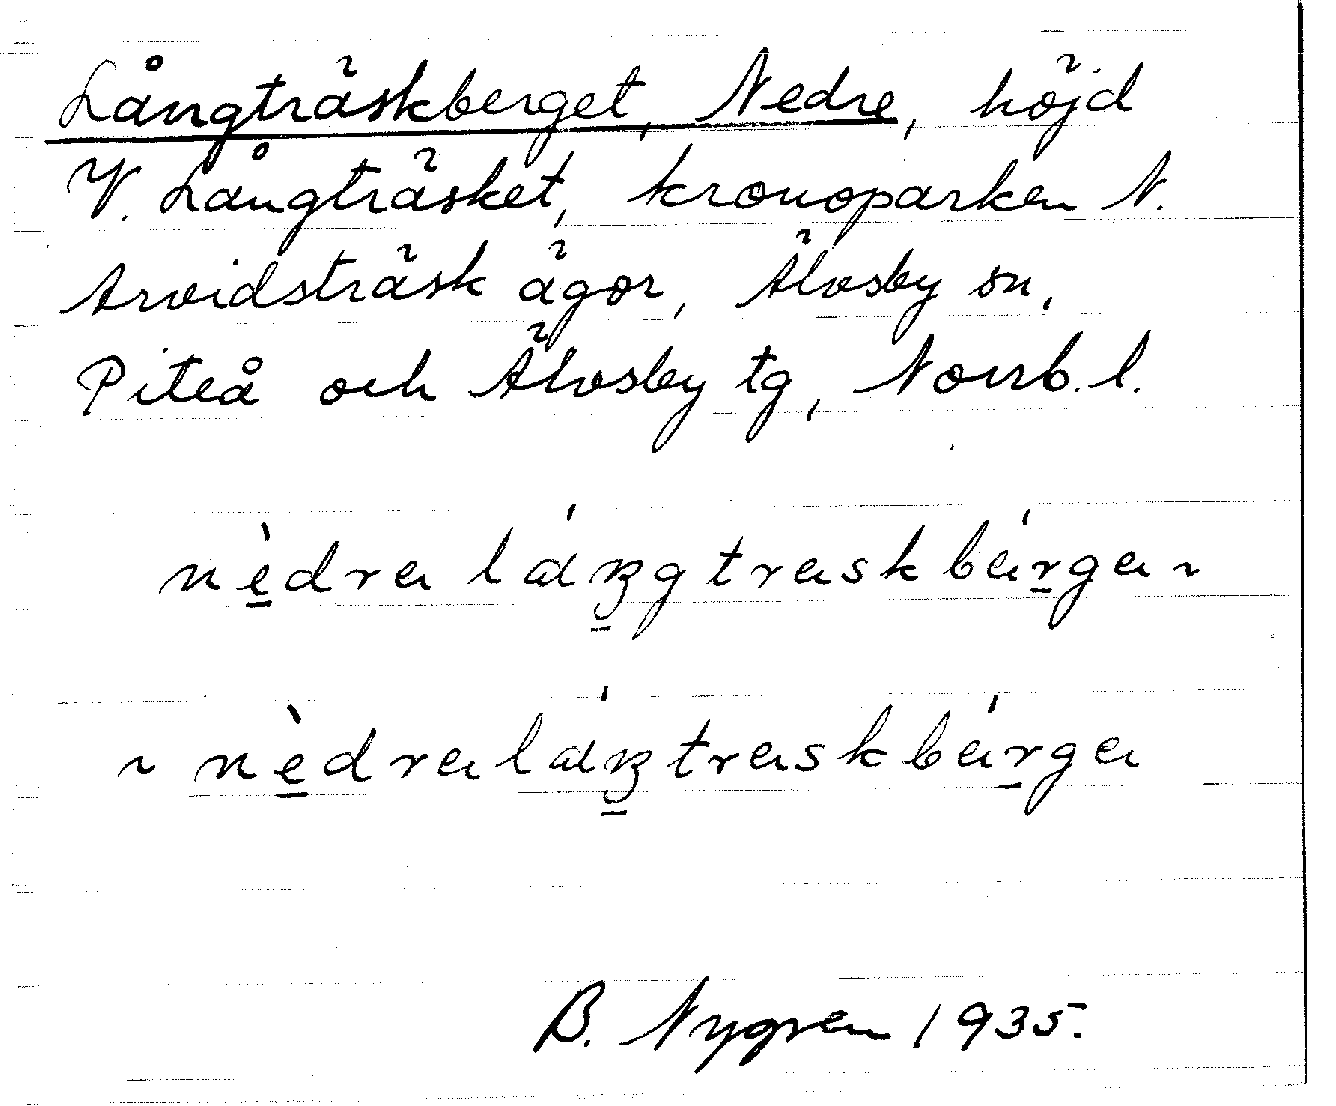 Långträskberget, Nedre, höjd
V. Långträsket, kronoparken N.
Arvidsträsk ägor, Älvsby sn,
Piteå och Älvsby tg, Norrb. l.
nèdra láŋgtraskbárga ~
~ nèdra láŋtraskbárga
B. Nygren 1935.